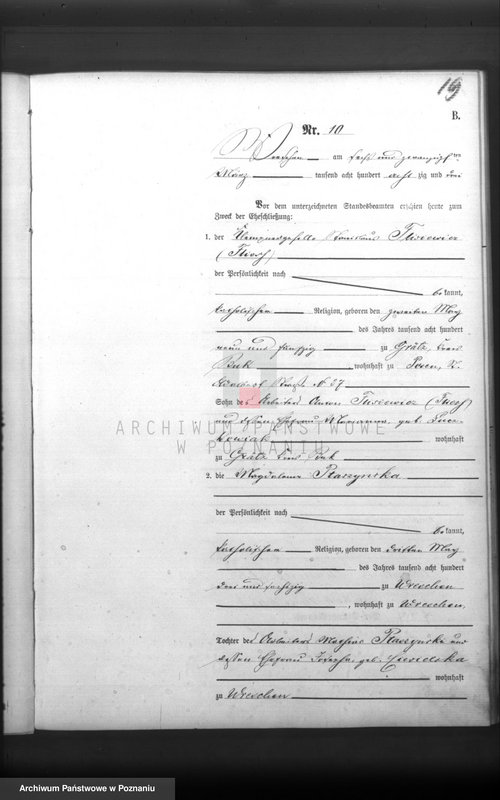 19
B.
Nr. 10
Wreschen am sechs und zwanzigsten
März tausend acht hundert acht zig und drei
Vor dem unterzeichneten Standesbeamten erschien heute zum
Zweck der Eheschließung:
1. der Klempnergeselle Stanislaus
der Persönlichkeit nach
bekannt,
katholischen Religion, geboren den zweiten May
des Jahres tausend acht hundert
neun und fünfzig zu Grätz, Kreis
Buk, wohnhaft zu Posen, St.
Adalbert Straße No
Sohn des Arbeiters Anton
und dessen Ehefrau Marianna, geb.
wohnhaft
zu Grätz Kreis Buk
2. die Magdalena
der Persönlichkeit nach
bekannt,
katholischen Religion, geboren den dritten May
des Jahres tausend acht hundert
drei und sechszig zu Wreschen
, wohnhaft zu Wreschen,
Tochter des Arbeiters und
dessen Ehefrau Josepha, geb.
wohnhaft
zu Wreschen
ARCHIWUM PAŃSTWOWE
W POZNANIU
Archiwum Państwowe w Poznaniu